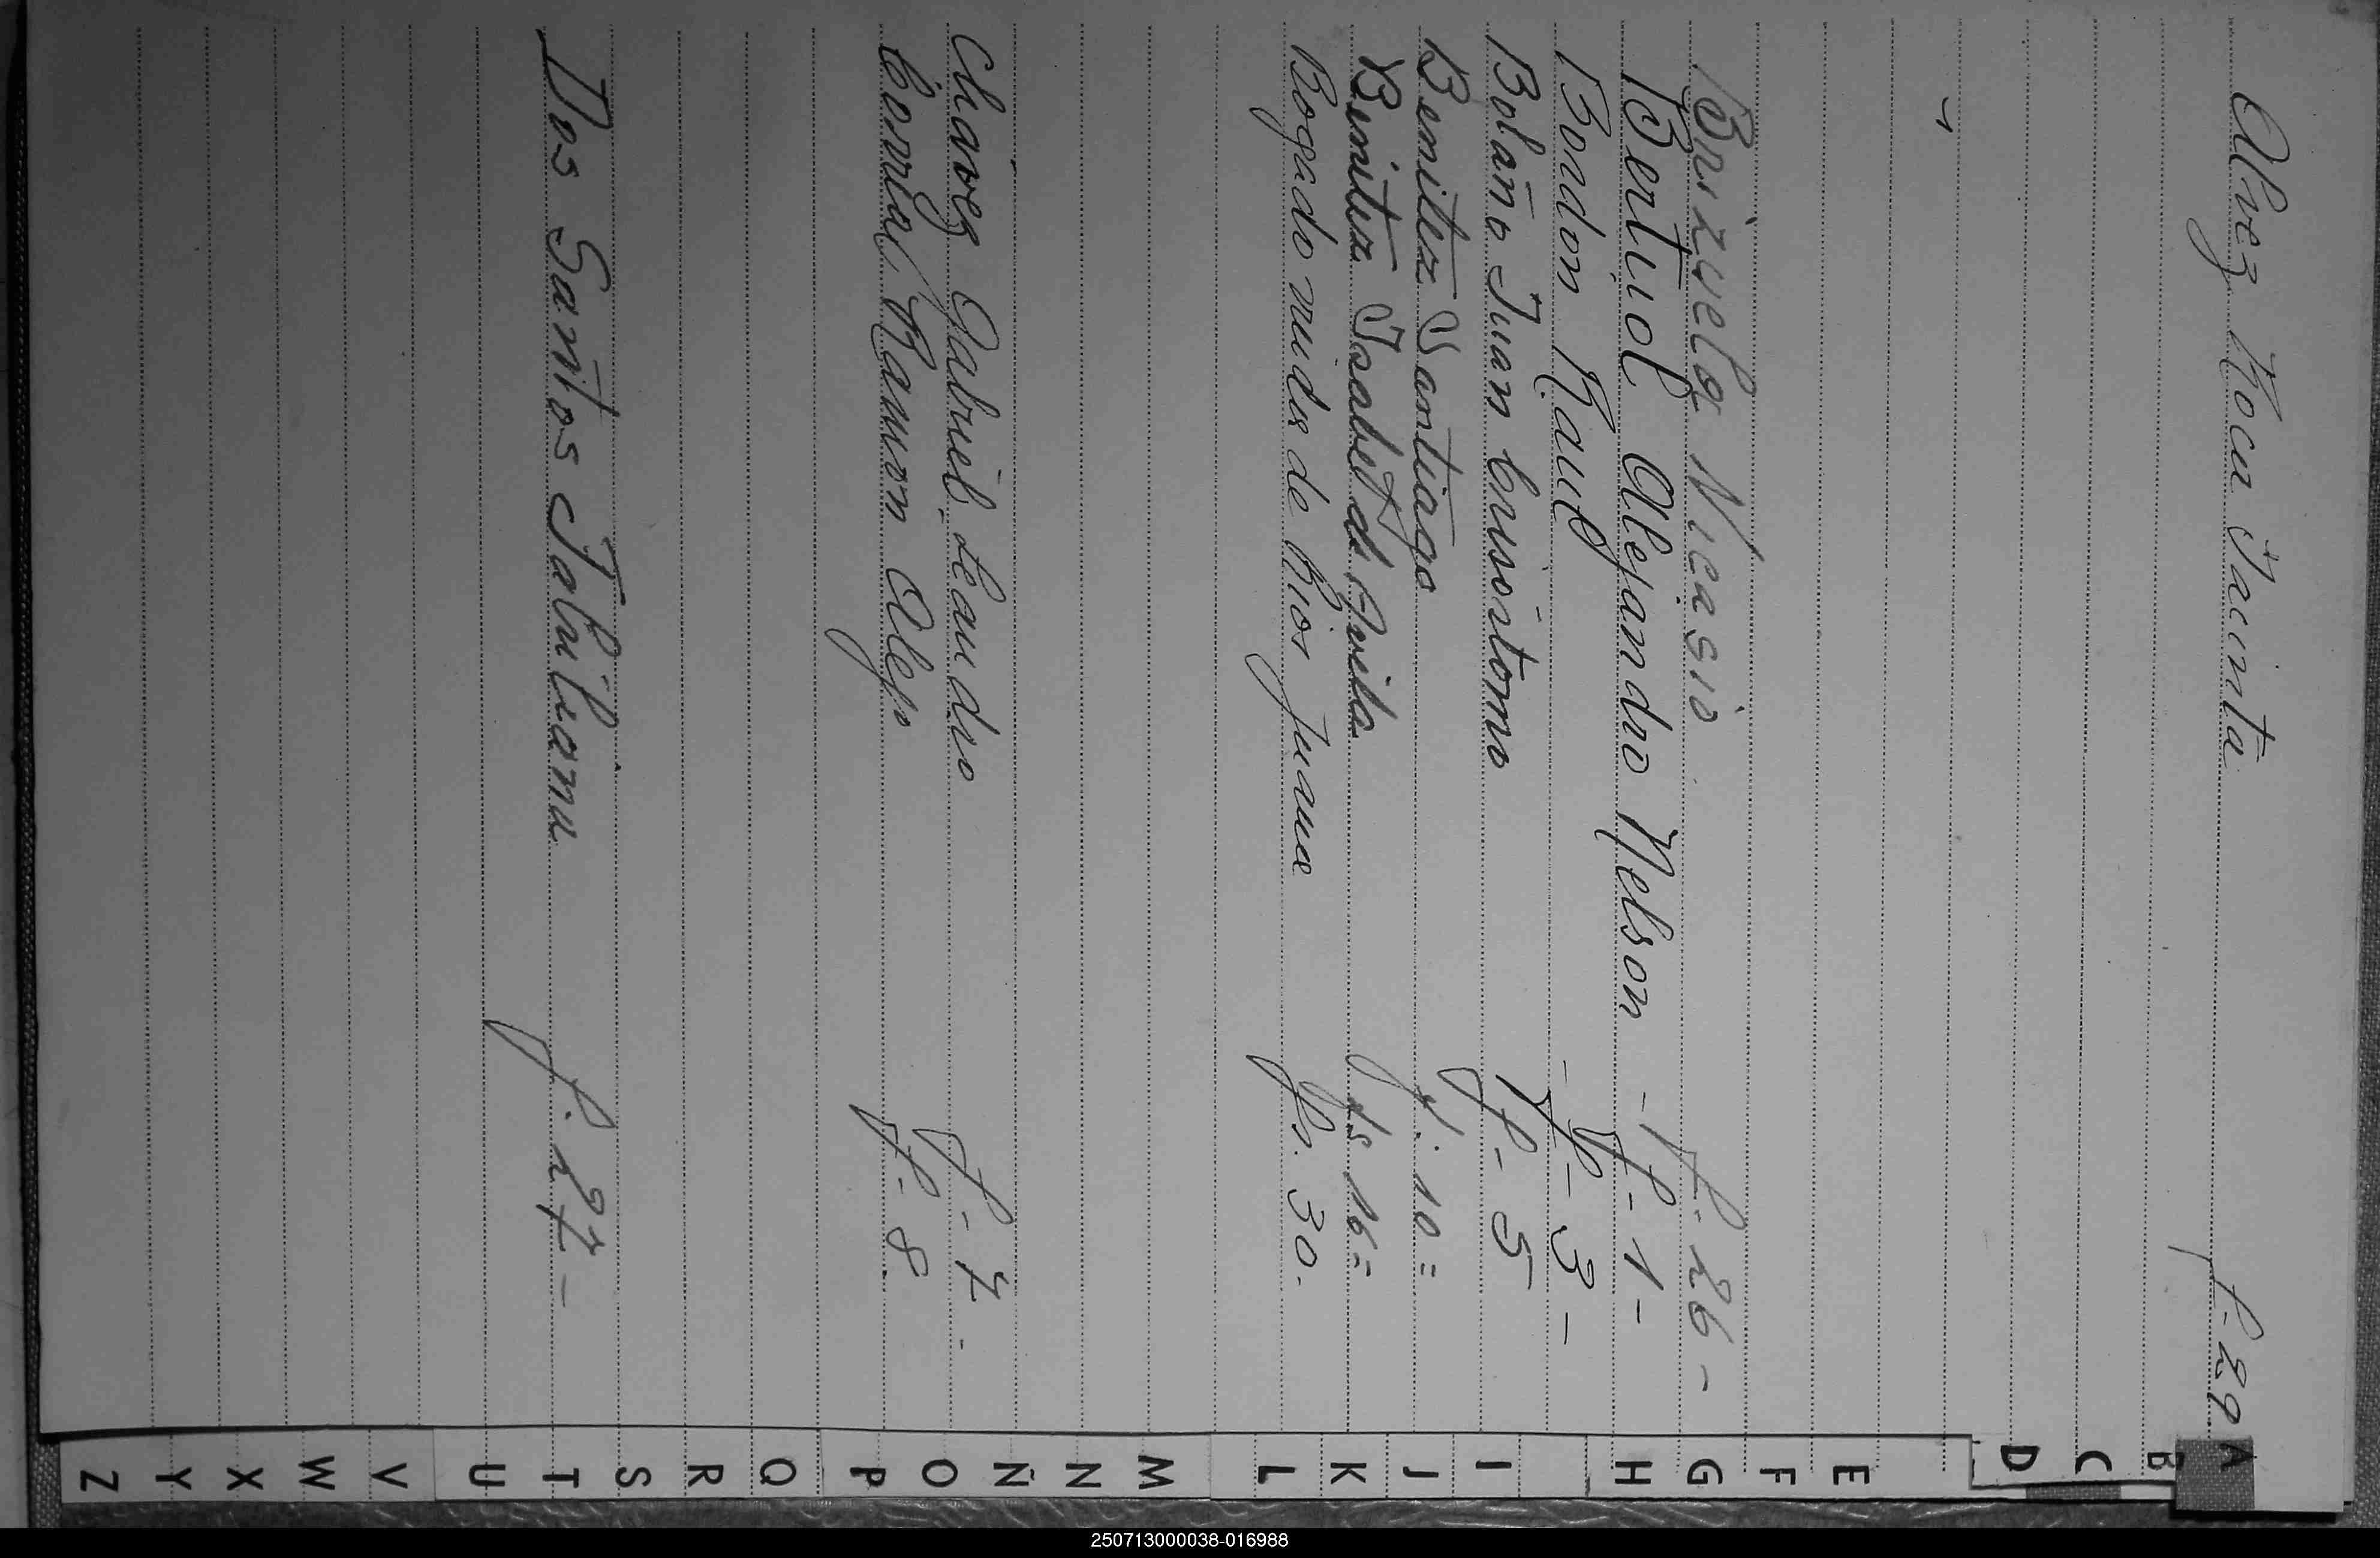 Alvez Roca Jacinta f. 29
Brizuela Nicasio - f. 26 -
Bertuol Alejandro Nelson - f - 1 -
Bordón Raul - f - 3 -
Bolaño Juan Crisóstomo f - 5
Benitez Santiago f. 10 =
Benitez Isabel de Avila fs 16 =
Bogado de Rios Juana fs. 30.
Chavez Gabriel Leandro f - 7 -
Corréa, Ramon Alejo f. 8.
Dos Santos f. 27 -
A
B
C
D
E
F
G
H
I
J
K
L
M
N
Ñ
O
P
Q
R
S
T
U
V
W
X
Y
Z
250713000038-016988